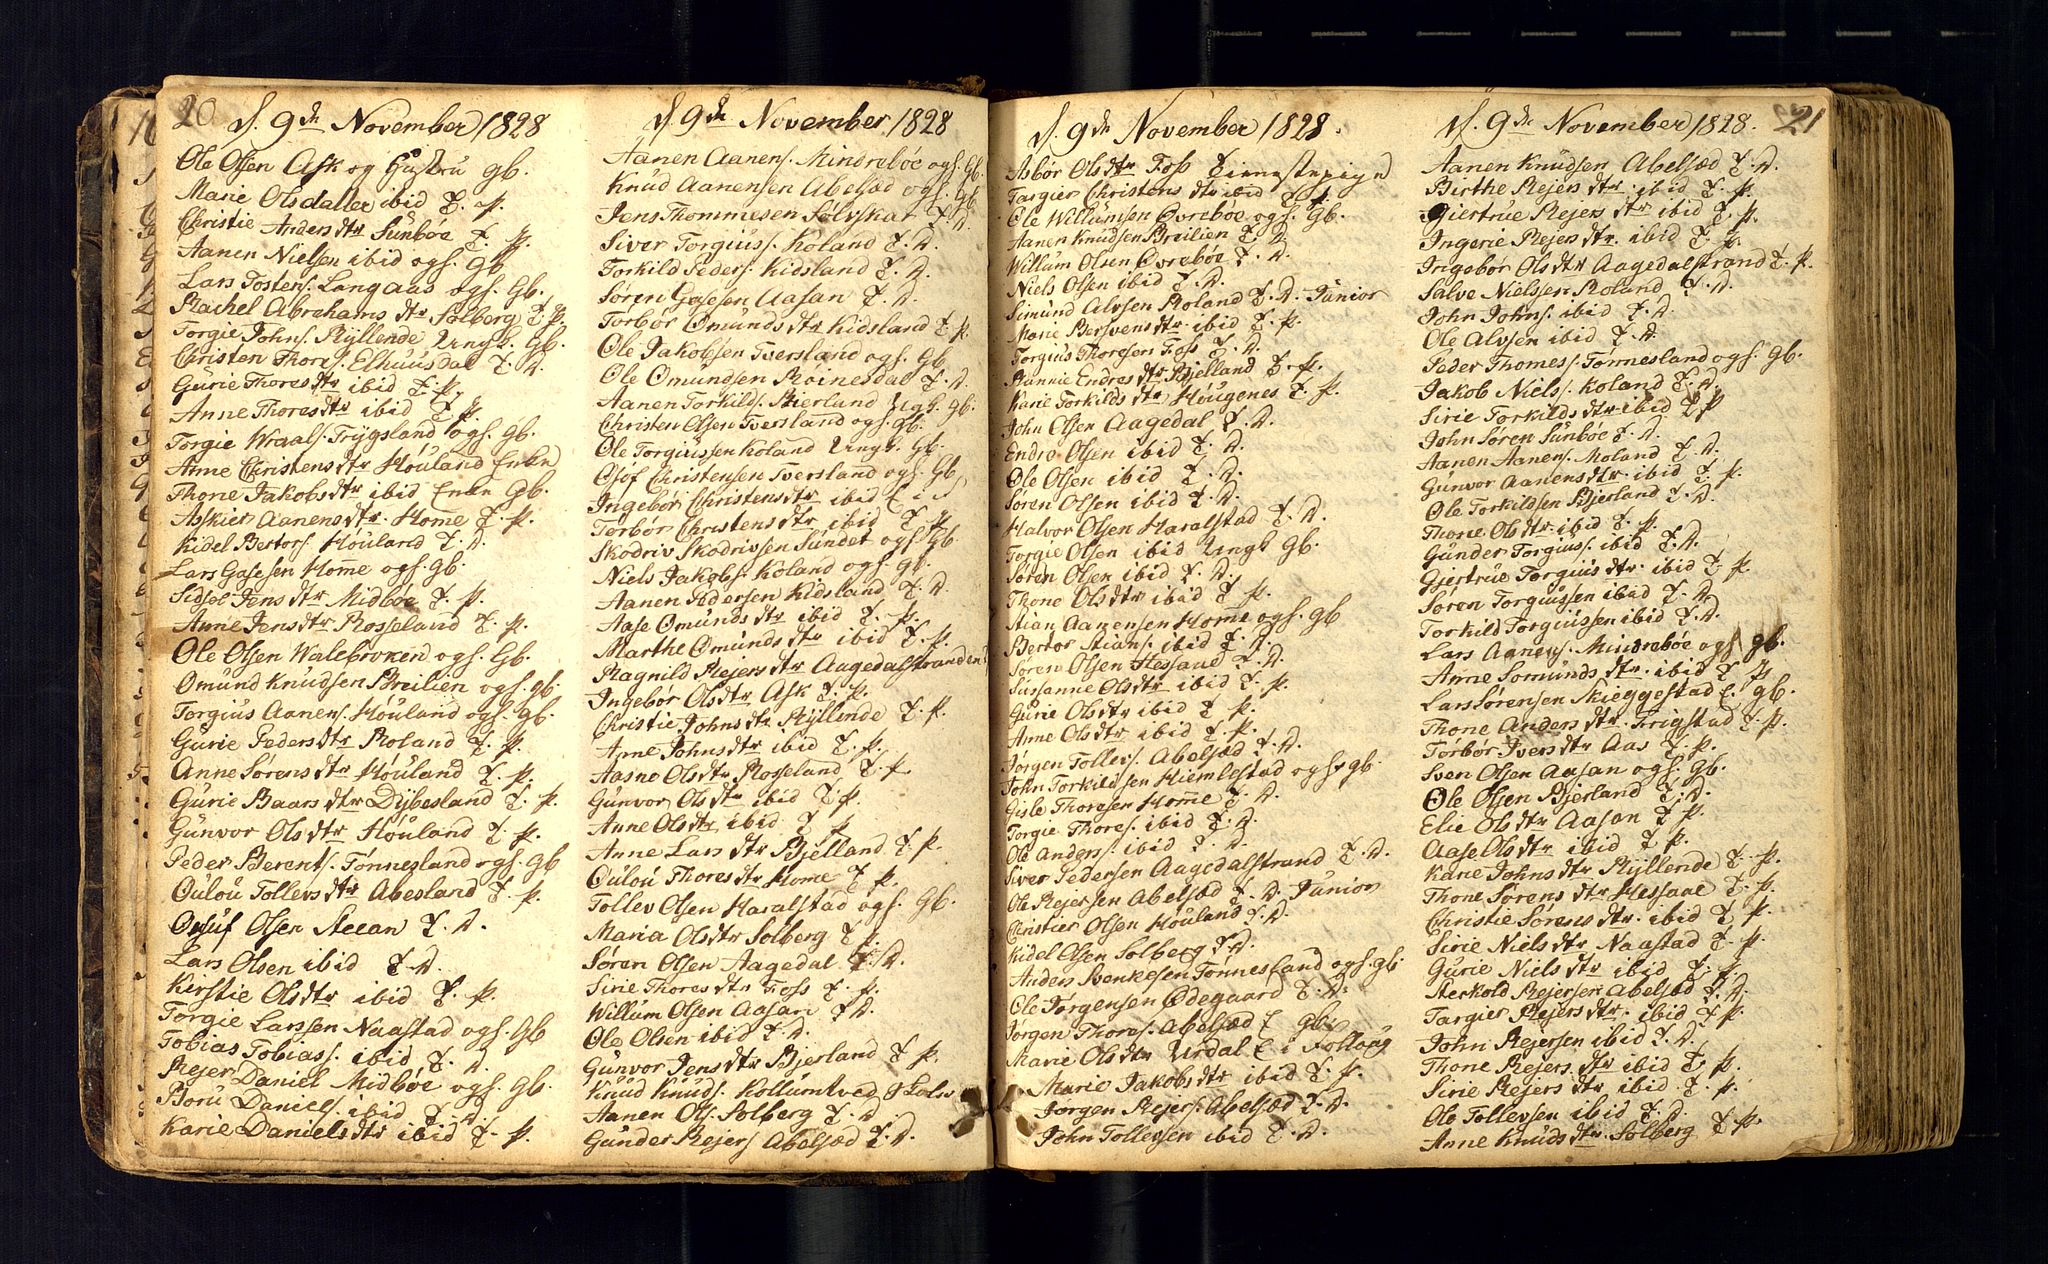 20
d. 9de November 1828
Ole Olsen Ask og Hustru gb.
Marie Olsdatter ibid T. p.
Christie Andersdtr Sünböe T. p.
Aanen Nielsen ibid ogh. gb.
Lars Tostens. Langaas ogh. Gb.
Rachel Abrahamsdtr Solberg T. p.
Torgie Johns. Ryllende Ungk. Gb.
Christen Thores. Elhuusdal T. D.
Gürie Thoresdtr ibid T. p.
Anne Thoresdtr ibid T. p.
Torgie Wraals. Trygsland ogh. Gb.
Anne Christensdtr Höuland Enke
Thone Jakobsdtr ibid Enke Gb.
Askier Aanensdtr. Home T. p.
Kidel Bertors. Höuland T. D.
Lars Gasesen Home ogh. gb.
Sidsel Jensdtr Midböe T. p.
Anne Jensdtr Rosseland T. p.
Ole Olsen Walebroken ogh. Gb.
Omünd Knüdsen Breilien ogh. gb.
Torgius Aanens. Höuland ogh. gb.
Gürie Pedersdtr Roland T. p.
Anne Sørensdtr Höuland T. p.
Gürie Baarsdtr Dybesland T. p.
Günvor Olsdtr Höuland T. p.
Peder Berents. Tønnesland ogh. gb
Oüloü Tollevsdtr Abesland T. p.
Osüf Olsen Steean T. D.
Lars Olsen ibid T. D.
Kirstie Olsdtr ibid T. p.
Torgie Larssen Naastad ogh. Gb
Tobias Tobiass. ibid T. D.
Rejer Daniel Midböe ogh. gb.
Borü Daniels. ibid T. D.
Karie Danielsdtr ibid T. p.
d. 9de November 1828
Aanen Aanens. Mindreböe ogh. Gb.
Knüd Aanensen Abelsæd ogh. Gb
Jens Thommesen Sølvskar T. D.
Siver Torgiuss. Koland T. D.
Torkild Peders. Kidsland T. D.
Søren Gasesen Aasan T. D.
Torbør Omündsdtr Kidsland T. p.
Ole Jakobsen Tversland ogh. Gb
Ole Omündsen Røinesdal T. D.
Aanen Torkilds. Bierland Ugk. Gb.
Christen Olsen Tversland ogh. gb.
Ole Torgiussen Koland Ungk. Gb.
Osöf Christensen Tversland ogh. Gb
Ingebør Christensdtr ibid E i F
Torbør Christensdtr ibid T. p.
Skodriv Skodrivsen Sündet ogh Gb
Niels Jakobs. Koland ogh. Gb.
Aanen Pedersen Kidsland T. D
Aase Omündsdtr ibid T. p.
Marthe Omündsdtr ibid T. p.
Ragnild Rejersdtr Aagedalstranden
Ingebør Olsdtr Ask T. p.
Christie Johnsdtr Ryllende T. p.
Anne Johnsdtr ibid T. p.
Aasne Olsdtr Rosseland T. p
Günvor Olsdtr ibid T. p.
Anne Olsdtr ibid T. p
Anne Larsdtr Bjelland T. p.
Oüloü Thoresdtr Home T. p.
Tollev Olsen Haralstad ogh. Gb.
Maria Olsdtr Solberg T. p.
Søren Olsen Aagedal T. D.
Sirie Thoresdtr Foss T. p.
Willum Olsen Aasan T D.
Ole Olsen ibid T. D.
Günvor Jensdtr Bjerland T. p.
Knüd Knüds. Kollumtved
Aanen Ols. Solberg T. D.
Günder Rejers Abelsæd T. D.
d. 9de November 1828.
Asbør Olsdtr Foss Tienestepige
Targier Christensdtr ibid T. p.
Ole Willümsen Øvreböe ogh. Gb.
Aanen Knüdsen Breilien T. D.
Willum Olsen Øvreböe T. D.
Niels Olsen ibid T. D.
Simünd Alvsen Roland T. D. Junior
Marie Bersvensdtr ibid T. p.
Torgius Thoresen Foss T. D.
Rannie Endresdtr Bjelland T. p.
Karie Torkildsdtr Höügenes T. p.
John Olsen Aagedal T. D.
Endre Olsen ibid T. D.
Ole Olsen ibid T. D.
Søren Olsen ibid T. D.
Halvor Olsen Haralstad T. D.
Torgie Olsen ibid Ungk Gb.
Søren Olsen ibid T. D.
Thone Olsdtr ibid T. p.
Stian Aanensen Home ogh. gb
Bertor Stians. ibid T. D.
Søren Olsen Hessaae T. D.
Susanne Olsdtr ibid T. p.
Gürie Olsdtr ibid T. p.
Anne Olsdtr ibid T. p.
Jørgen Tollevs. Abelsæd T. D.
John Torkildsen Hiemlestad ogh gb.
Gisle Thoresen Home T. D.
Torgie Thores. ibid T. D.
Ole Anders. ibid T. D.
Siver Pedersen Aagedalstrand T. D.
Ole Rejersen Abelsæd T. D. Junior
Christier Olsen Höuland T. D.
Kidel Olsen Solberg T. D.
Anders Svenkesen Tønnesland ogh. gb.
Ole Jørgensen Ødegaard T. D.
Jørgen Thores. Abelsæd E Gb.
Marie Olsdtr Urdal E i Follaug
Marie Jakobsdtr ibid T. p.
Jørgen Rejers. Abelsæd T. D.
John Tollevsen ibid T. D.
d. 9de November 1828. 21
Aanen Knüdsen Abelsæd T. D.
Birthe Rejersdtr. ibid T. p.
Giertrue Rejersdtr ibid T. p.
Ingerie Rejersdtr. ibid T. p.
Ingebør Olsdtr Aagedalstrand T. p.
Salve Nielssen Roland T. D.
John Johns. ibid T. D.
Ole Alvsen ibid T. D.
Peder Thomes. Tønnesland ogh. Gb.
Jakob Niels. Koland T. D.
Sirie Torkildsdtr ibid T p
John Søren Sünböe T. D.
Aanen Aanens. Moland T. D.
Günvor Aanensdtr. ibid T. p.
Ole Torkildsen Bjerland T. D.
Thone Olsdtr ibid T. p.
Günder Torgiuss. ibid T. D.
Gjertrue Torgiusdtr. ibid T. p.
Søren Torgiussen ibid T. D.
Torkild Torgiussen ibid T. D.
Lars Aanens. Mindreböe ogh gb.
Anne Somündsdtr. ibid T p
Lars Sørensen Skieggestad E. gb.
Thone Andersdtr. Trigstad T. p.
Torbør Iversdtr Aas T. p.
Sven Olsen Aasan ogh. Gb.
Ole Olsen Bjerland T. D.
Elie Olsdtr Aasan T p.
Aase Olsdtr ibid T p.
Karie Johnsdtr Ryllende T. p.
Thone Sørensdtr Hessaae T. p.
Christie Sørensdtr. ibid T. p.
Sirie Nielsdtr Naastad T. p.
Gürie Nielsdtr ibid T. p.
Sterkold Rejersen Abelsæd T. D.
Targier Rejersdtr. ibid T. p.
John Rejersen ibid T. D.
Thone Rejersdtr ibid T. p.
Sirie Rejersdtr ibid T. p.
Ole Tollevsen ibid T. D.
Anne Knüdsdtr. Solberg T. p.